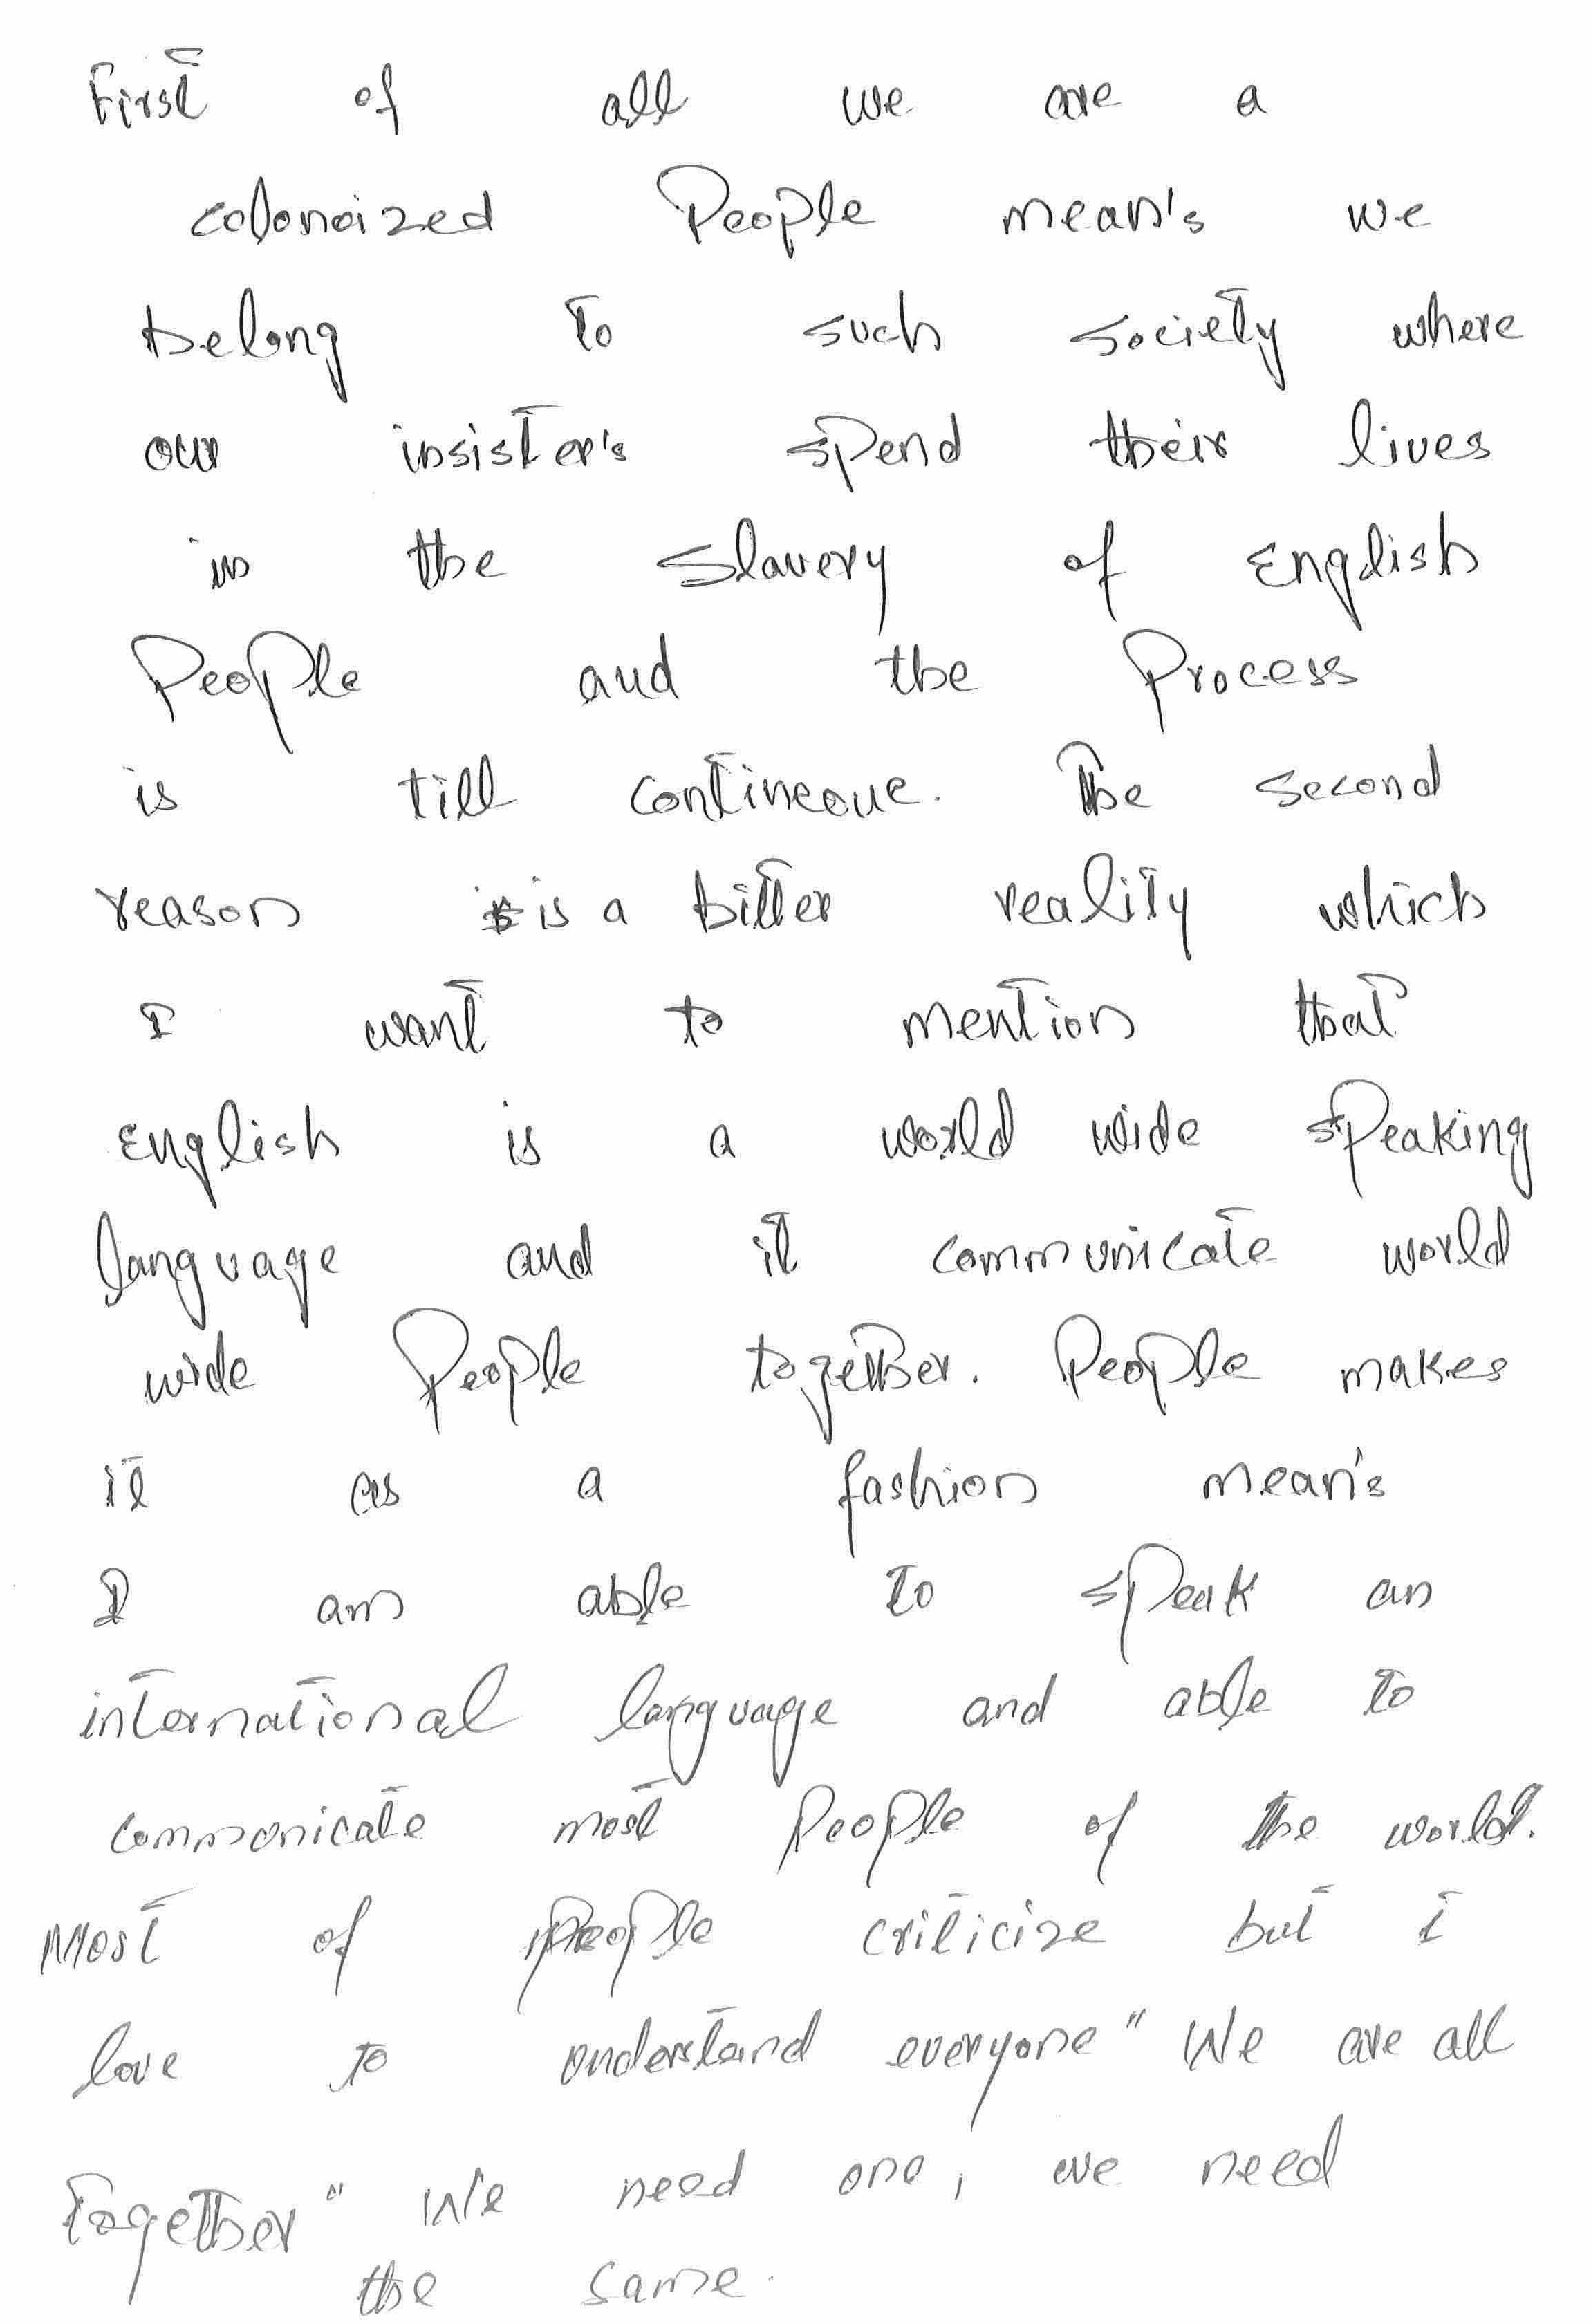 First of all we are a
colonoized People mean's we
belong to such society where
our insister's spend their lives
in the slavery of English
People and the Process
is till contineoue. The second
reason is a bitter reality which
I want to mention that
English is a world wide speaking
language and it communicate world
wide People together. People makes
it as a fashion mean's
I am able to speak an
international language and able to
communicate most People of the world.
Most of People criticize but i
love to understand everyone" We are all
Together" We need one, we need
the same.